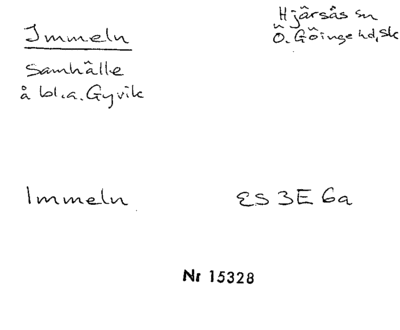 Immeln
Hjärsås sn
Ö. Göinge hd, Sk
Samhälle
å bl.a. Gyvik
Immeln
ES 3E 6a
Nr 15328